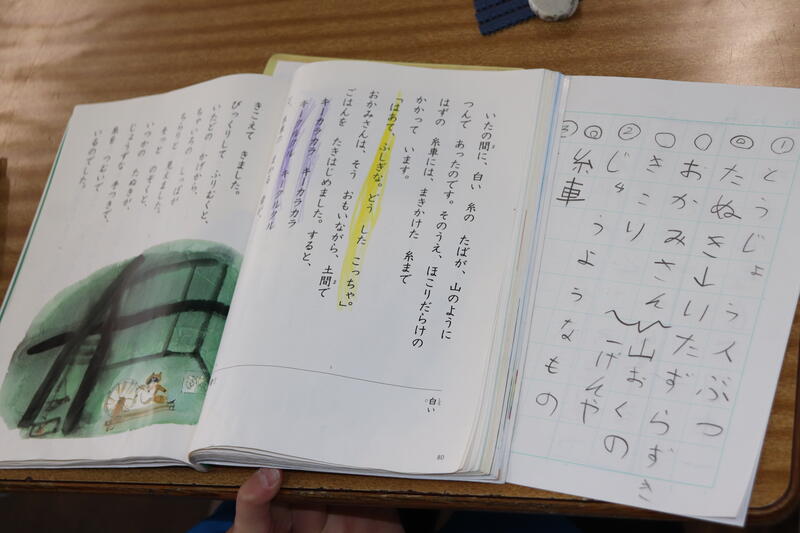 ① とうじょう人ぶつ
◎ たぬき→いたずらずき
○ おかみさん
○ きこり
山おくの
一けんや
② じゅうようなもの
◎ 糸車
③
いたの間に、白い 糸の たばが、山のように
つんで あったのです。そのうえ、ほこりだらけの
はずの 糸車には、まきかけた 糸まで
かかって います。
「はあて、ふしぎな。どう した こっちゃ。」
おかみさんは、そう おもいながら、土間で
ごはんを たきはじめました。すると、
キーカラカラ キーカラカラ
キークルクル キークルクル
と、糸車の まわる 音が、
白い
80
きこえて きました。
びっくりして ふりむくと、
いたどの かげから、
ちゃいろの しっぽが
ちらりと 見えました。
そっと のぞくと、
いつかの たぬきが、
じょうずな 手つきで、
糸を つむいで
いるのでした。